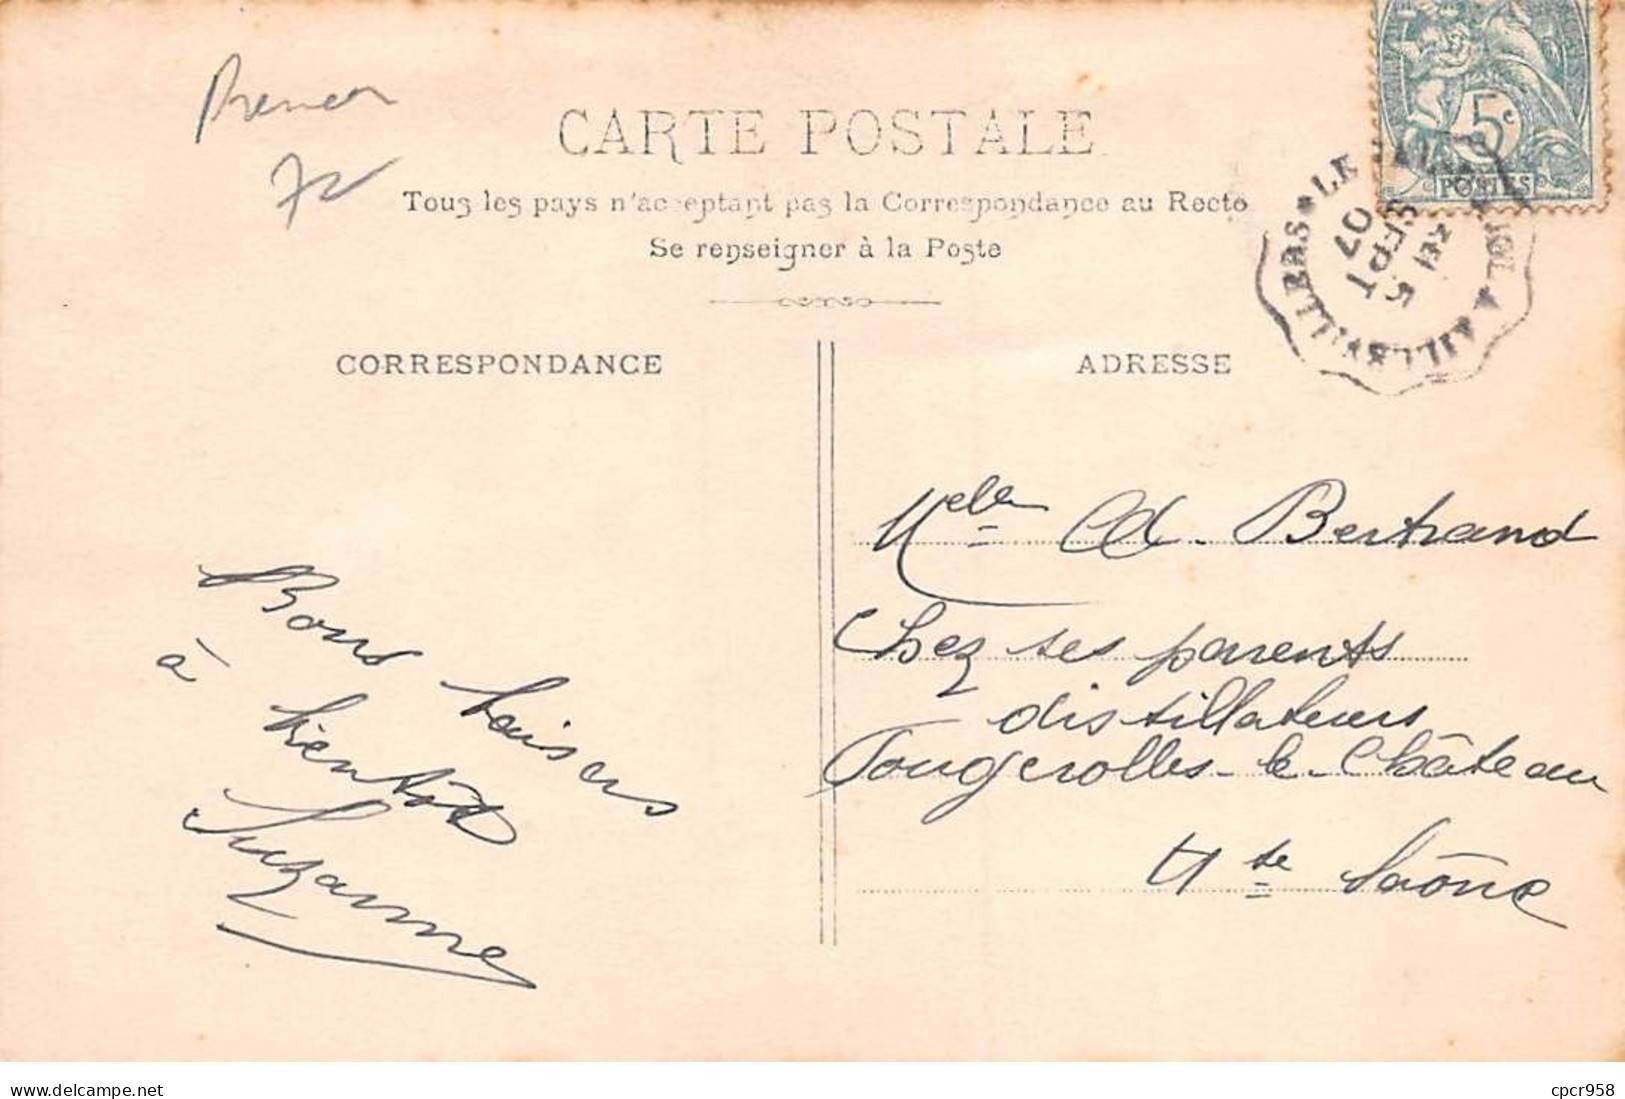 CARTE POSTALE
Tous les pays n'acceptant pas la Correspondance au Recto
Se renseigner à la Poste
5c
POSTES
5 SEPT 07
AILLEVILLERS
CORRESPONDANCE
ADRESSE
Bons baisers
à bientôt
Suzanne
Melle Ad. Bertrand
Chez ses parents
distillateurs
Fougerolles-le-Château
Hte Saône
www.delcampe.net
cpcr958